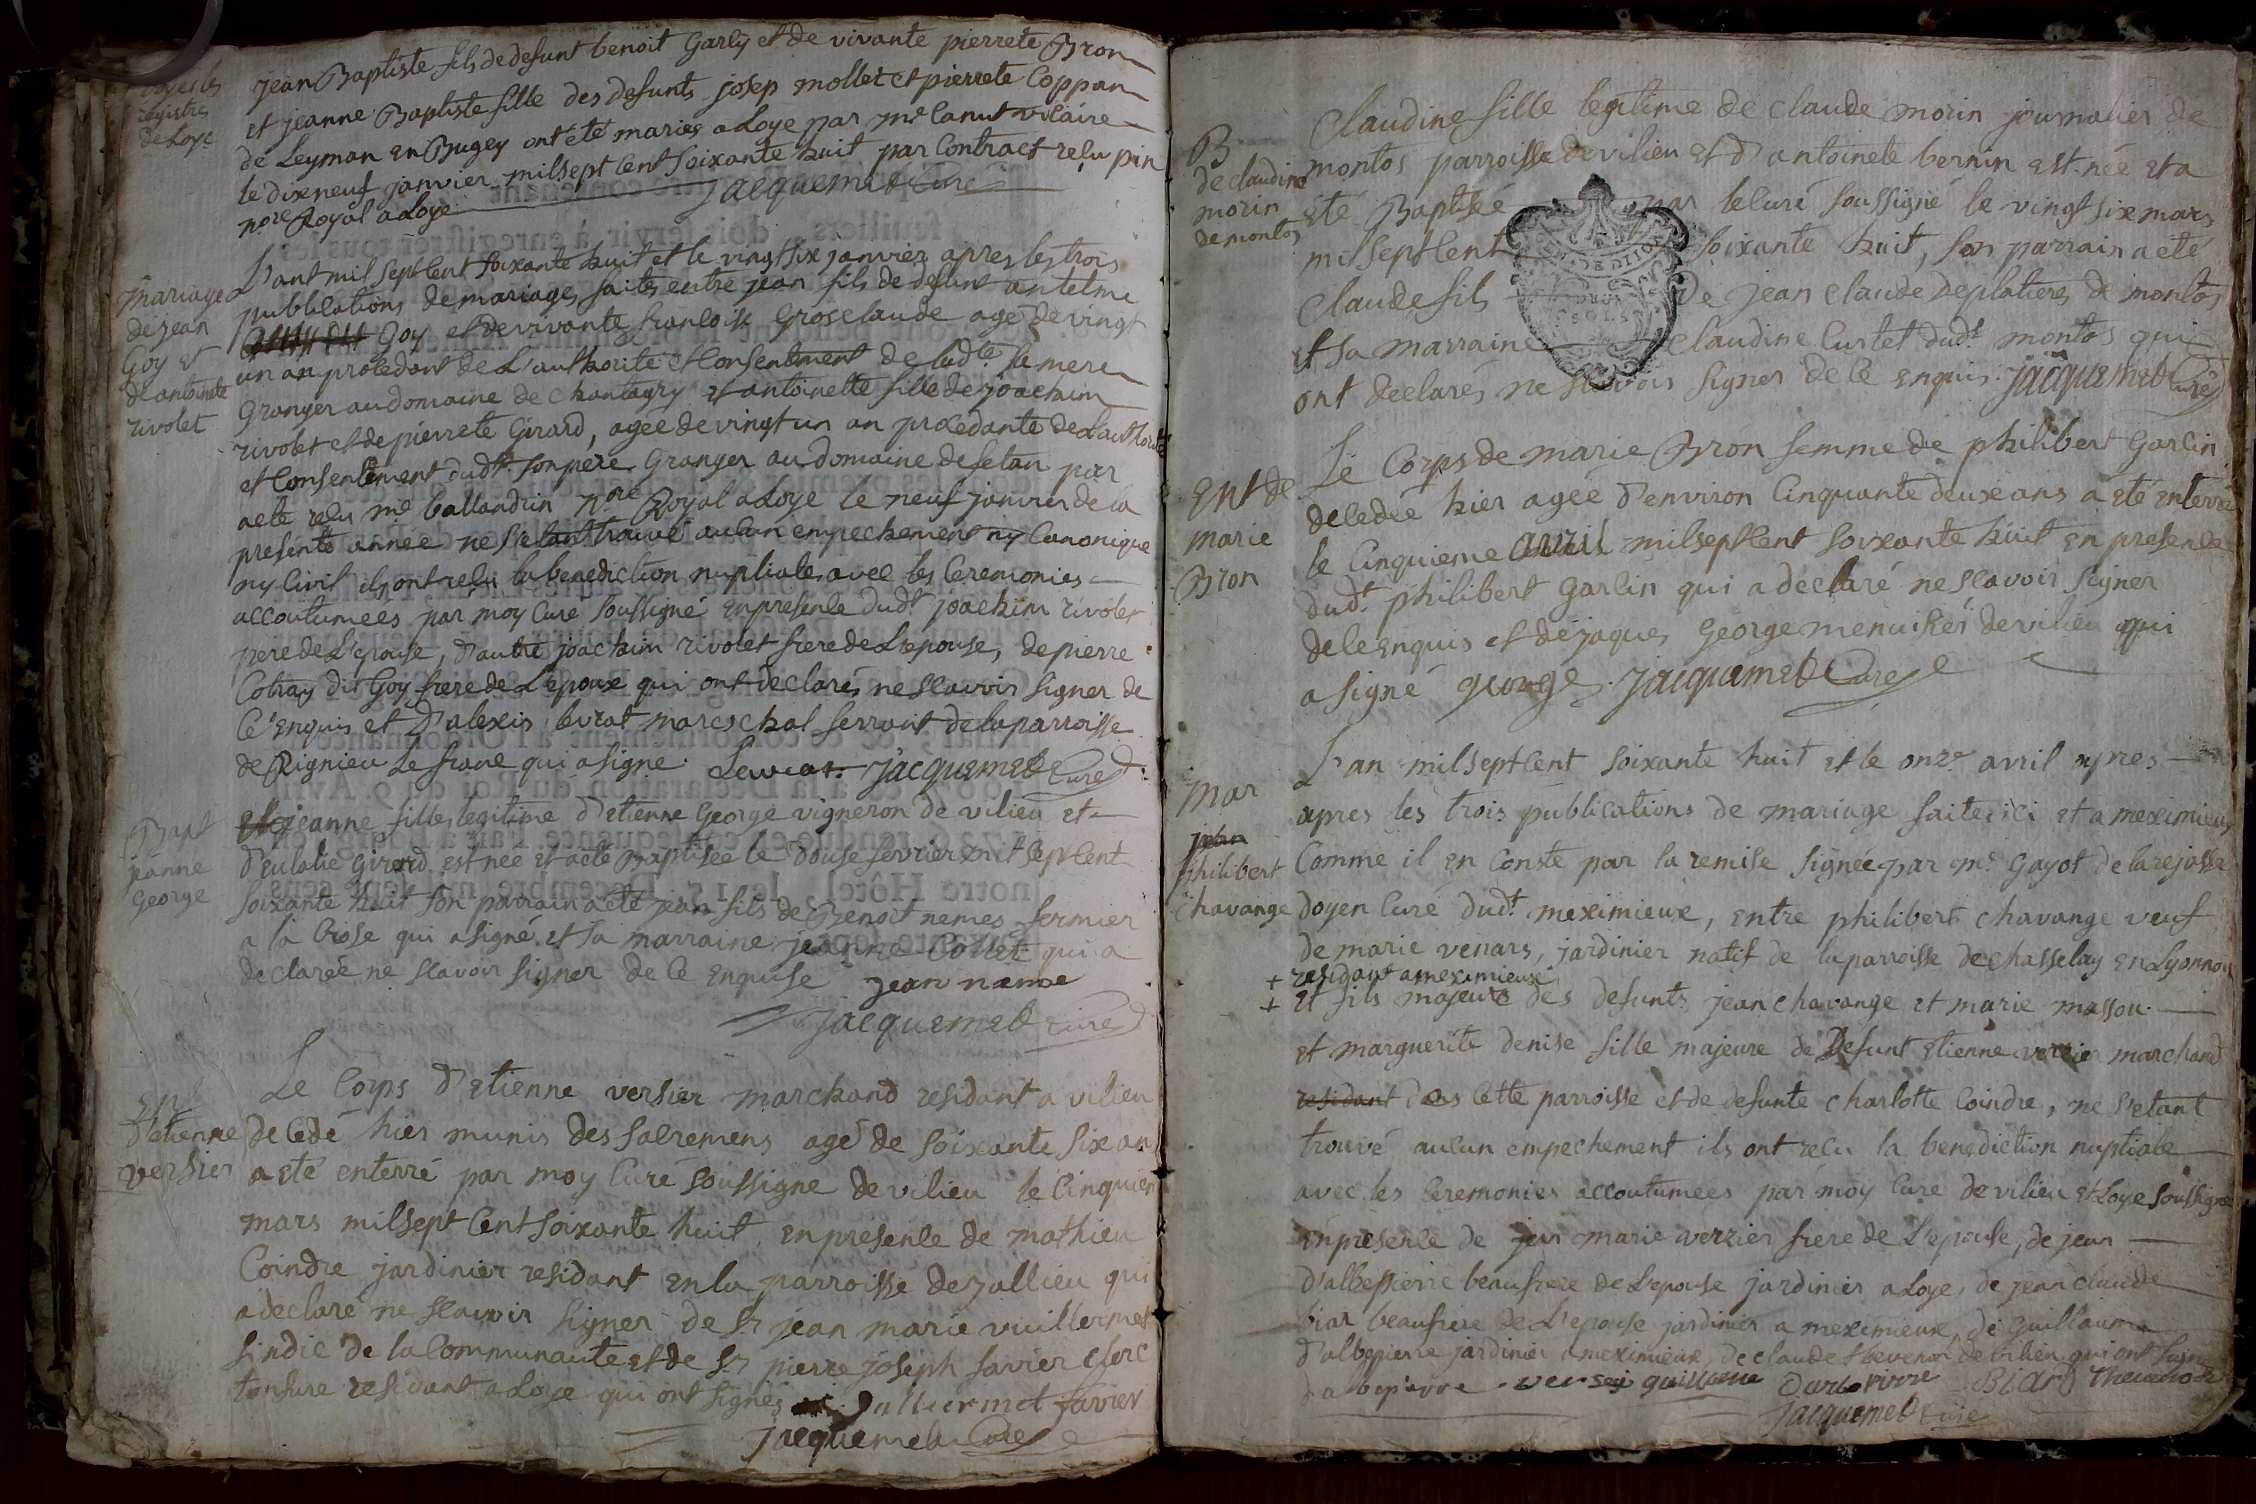 jean Baptiste fils de defunt benoit Garlÿ et de vivante pierrete Bron
et jeanne Baptiste fille des defunts josep mollet et pierrete Coppan
de Leyman en Bugey ont été mariés a Loye par mre Canut vicaire
le dixneuf janvier milsept Cent soixante huit par Contract reçu pin
nore Royal a Loye jacquemet Curé
registre
de Loye
mariage
de jean
Goy et
de antoinete
rivolet
L'ant mil sept Cent soixante huit et le vingt six janvier apres les trois
publications de mariages faites entre jean fils de defunt antelme
Goy et de vivante francoise Groselaude agé de vingt
un an procedant de L'authorité et Consentement de ladte sa mere
Granger au domaine de Chantagry et antoinette fille de joachim
rivolet et de pierrete Girard, agée de vingt un an procedante de L'authorité
et Consentement dudt son père Granger au domaine de fetan par
acte reçu me ballandrin nore Royal a Loye le neuf janvier de la
presente année ne s'etant trouvé aucun empechement ny Canonique
ny Civil ils ont reçu la benediction nuptiale avec les Ceremonies
accoutumees par moy Curé soussigné en presence dudt joachim rivolet
pere de L'epouse, d'autre joachim rivolet frere de L'epouse, de pierre
Cotray dit Goy frere de L'epoux qui ont declarés ne scavoir signer de
Ce enquis et D'alexis levrat mareschal ferrant de la parroisse
de Rignieu Le franc qui a signé. Levrat jacquemet Curé
Bapt
jeanne
George
jeanne fille legitime D'etienne George vigneron de vilieu et
D'eulalie Girard est née et a eté Baptisée le douse fevrier mil sept Cent
soixante huit son parrain a eté jean fils de Benoit nemes fermier
a la brosse qui a signé et sa marraine jeanne Collet qui a
declarée ne scavoir signer de Ce enquise jean name
jacquemet Curé
En
D'etienne
versier
Le Corps D'etienne versier marchand residant a vilieu
decedé hier munis des sacremens agé de soixante six an
a eté enterré par moy Curé soussigné de vilieu le Cinquiem
mars milsept Cent soixante huit en presence de mathieu
Coindre jardinier residant en la parroisse de jallieu qui
a declaré ne scavoir signer de Sr jean marie vuillermet
sindic de la Communauté et de Sr pierre joseph favier Clerc
tonsure residant a Loye qui ont signés Vulliermet favier
jacquemet Curé
B
de claudine
morin
de montos
Claudine fille legitime de claude morin journalier de
montos parroisse de vilieu et D'antoinete bernin est née et a
eté Baptisée par le Curé soussigné le vingt six mars
mil sept Cent soixante huit, son parrain a eté
Claude fils de jean claude Deplatieres de montos
et sa marraine claudine Curtet dudt montos qui
ont declarés ne scavoir signer de Ce enquis. jacquemet Curé
Ent de
marie
Bron
Le Corps de marie Bron femme de philibert Garlin
decedée hier agée d'environ Cinquante deux ans a eté enterré
le Cinquieme avril milsept Cent soixante huit en presence
dudt philibert Garlin qui a declaré ne scavoir signer
de Ce enquis et de jaques George menuisier de vilieu qui
a signé george. jacquemet Curé
mar
jean
philibert
Chavange
L'an milsept Cent soixante huit et le onze avril apres
apres les trois publications de mariage faites ici et a meximieux
Comme il en Conste par la remise signée par me Gayot de la rejasse
doyen Curé dudt meximieux, entre philibert chavange veuf
de marie venars, jardinier natif de la parroisse de chasselay en Lyonnois
+ residant a meximieux
+ et fils majeure des defunts jean chavange et marie massou
et marguerite denise fille majeure de Defunt Etienne versier marchand
residant dans Cette parroisse et de defunte Charlotte Coindre, ne s'etant
trouvé aucun empechement ils ont reçu la benediction nuptiale
avec les Ceremonies accoutumees par moy Curé de vilieu et Loye soussigné
en presence de jean marie verzier frere de L'epouse, de jean
D'albepierre beaufrere de L'epouse jardinier a Loye, de jean claude
biar beaufrere de L'epouse jardinier a meximieux, de Guillaume
D'albepierre jardinier a meximieux, de claude thevenon de vilieu qui ont signé
dabepierre versey guillaume Darbepierre Biard Thevenon
jacquemet Curé